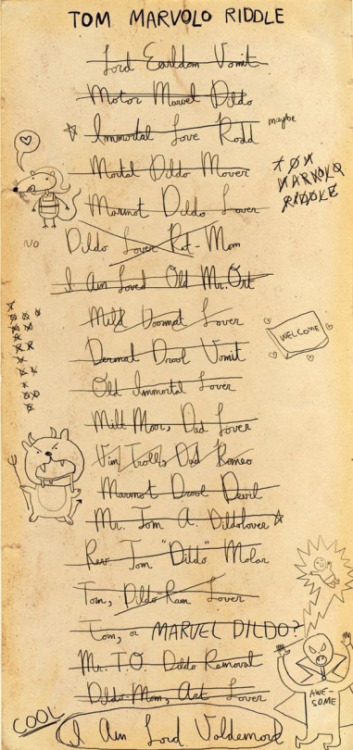 TOM MARVOLO RIDDLE
Lord Earldom Vomit
Motor Marvel Dildo
Immortal Love Rodd
maybe
Mortal Dildo Mover
TOM
MARVOLO
RIDDLE
Marmot Dildo Lover
NO
Dildo Lover Rot-Mam
I Am Loved Old Mr. Ort
Mild Doormat Lover
WELCOME
Dermal Drool Vomit
Old Immortal Lover
Milt Moor, Dad Lover
Vim Trolls, Dad Romeo
Marmot Drool Devil
Mr. Tom A. Dildolover
Rev Tom "Dildo" Molar
Tom, Dildo Ram Lover
Tom, or MARVEL DILDO?
Mr. T.O. Dildo Removal
Dildo Mom, Art Lover
AWE-
SOME
COOL
I Am Lord Voldemort